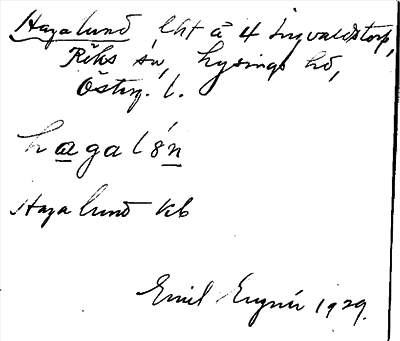 Hagalund lht å 4 Ingvaldstorp,
Röks sn, Lysings hd,
Östg. l.
hagalón
Hagalund kb
Emil 1929.